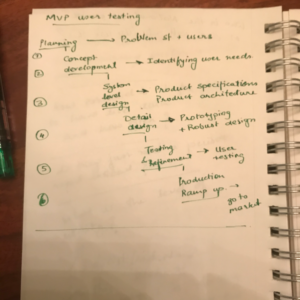 MVP user testing
Planning → Problem st + users
(1) Concept
development → Identifying user needs
(2) System
level → Product specifications
design Product architecture
(3) Detail
design → Prototyping
+ Robust design
(4) Testing
& Refinement → User
testing
(5) Production
Ramp up → go to
market
(6)